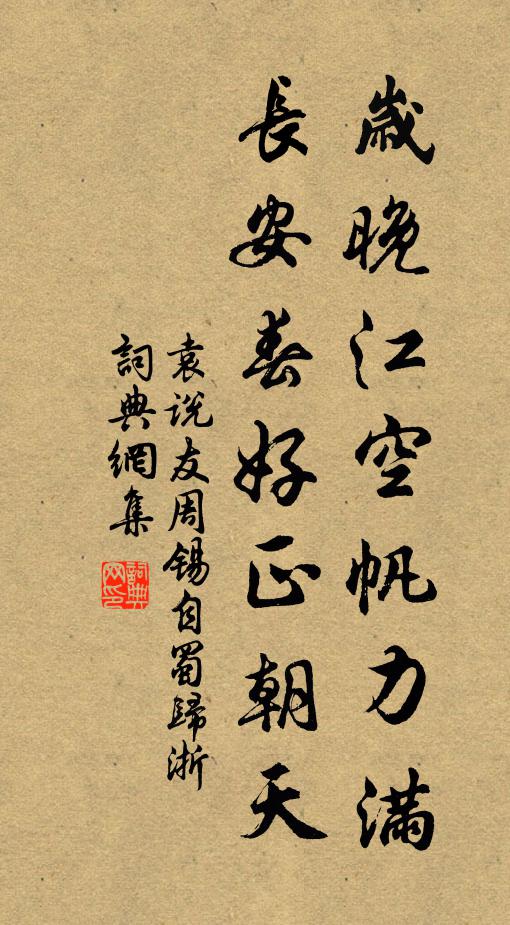 歲晚江空帆力滿
長安春好正朝天
袁説友周錫自蜀歸浙
詞典網集
詞典網印